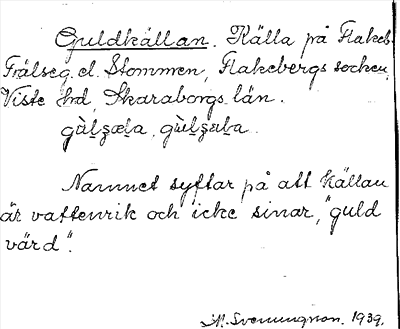 Guldkällan. Källa på Flakeb.
Frälseg. el. Stommen, Flakebergs socken,
Viste hd, Skaraborgs län.
gùlʒæla, gùlʒala.
Namnet syftar på att källan
är vattenrik och icke sinar, "guld
värd".
M. Svenungson. 1939.